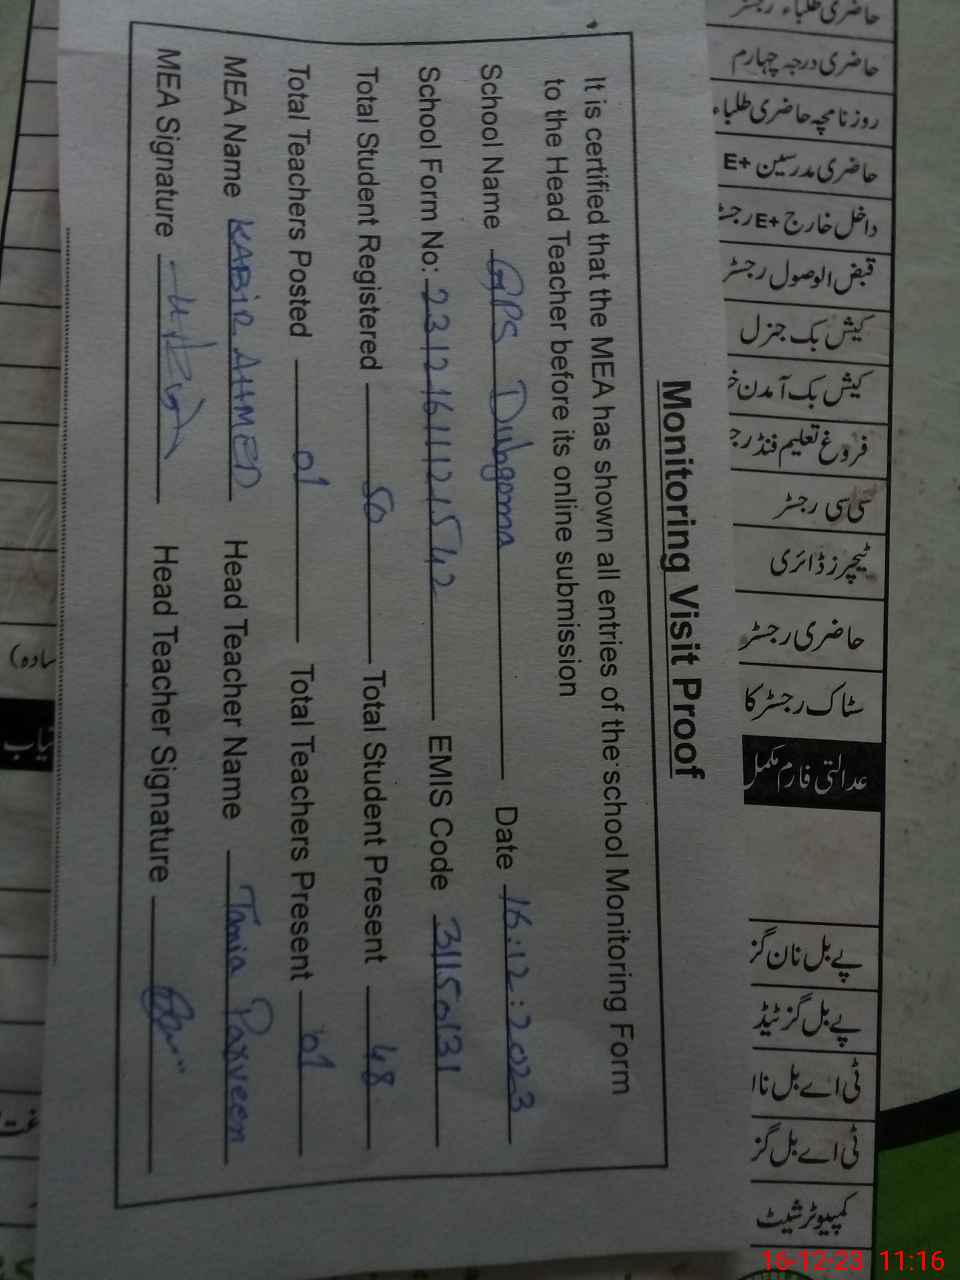 Monitoring Visit Proof
It is certified that the MEA has shown all entries of the school Monitoring Form
to the Head Teacher before its online submission
School Name GPS Duhgama Date 16:12:2023
School Form No: 23121611121542 EMIS Code 31150131
Total Student Registered 50 Total Student Present 48
Total Teachers Posted 01 Total Teachers Present 01
MEA Name KABIR AHMED Head Teacher Name Tania Parveen
MEA Signature Head Teacher Signature
حاضری طلباء رجسٹر
حاضری درجہ چہارم
روزنامچہ حاضری طلباء
حاضری مدرسین +E
داخل خارج +E رجسٹر
قبض الوصول رجسٹر
کیش بک جنرل
کیش بک آمدن
فروغ تعلیم فنڈ
سی سی رجسٹر
ٹیچرز ڈائری
حاضری رجسٹر
سٹاک رجسٹر کا
عدالتی فارم مکمل
پے بل نان گز
پے بل گزٹیڈ
ٹی اے بل نا
ٹی اے بل گز
کمپیوٹر شیٹ
سادہ)
16-12-23 11:16